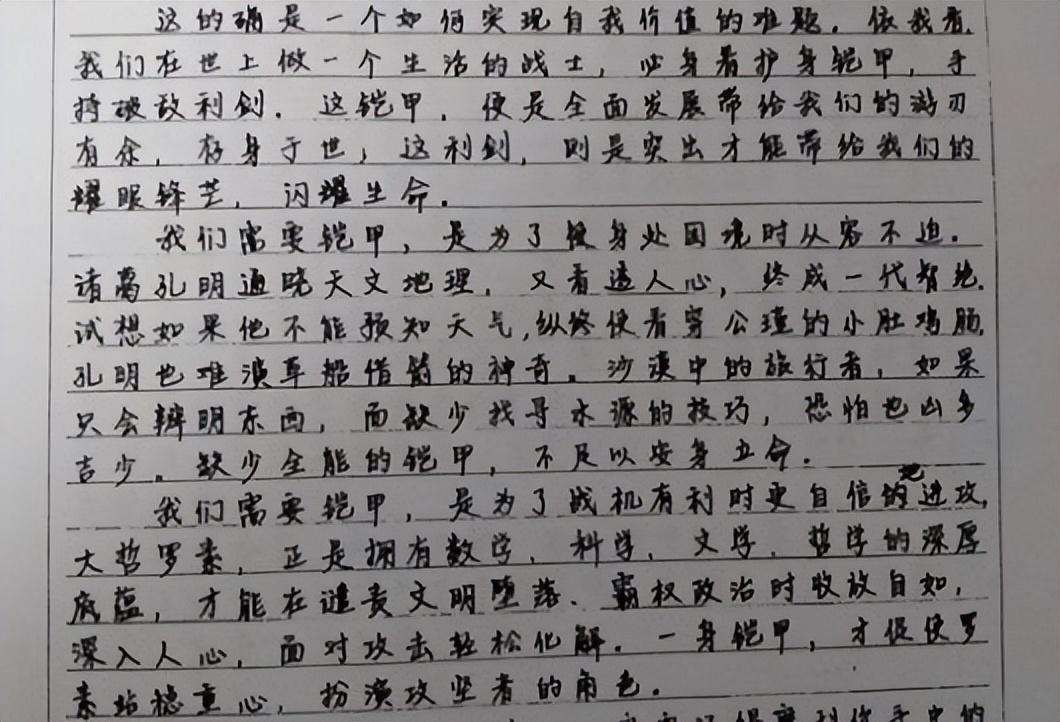 这的确是一个如何实现自我价值的难题。依我看,
我们在世上做一个生活的战士，必身着护身铠甲，手
持破敌利剑。这铠甲，便是全面发展带给我们的游刃
有余，存身于世，这利剑，则是突出才能带给我们的
耀眼锋芒，闪耀生命。
我们需要铠甲，是为了使身处困境时从容不迫。
诸葛孔明通晓天文地理，又看透人心，终成一代智绝。
试想如果他不能预知天气,纵终使看穿公瑾的小肚鸡肠,
孔明也难演草船借箭的神奇。沙漠中的旅行者，如果
只会辨明东西，而缺少找寻水源的技巧，恐怕也凶多
吉少。缺少全能的铠甲，不足以安身立命。
我们需要铠甲，是为了战机有利时更自信地进攻,
大哲罗素，正是拥有数学、科学、文学、哲学的深厚
底蕴，才能在谴责文明堕落、霸权政治时收放自如，
深入人心，面对攻击轻松化解。一身铠甲，才促使罗
素站稳重心，扮演攻坚者的角色。